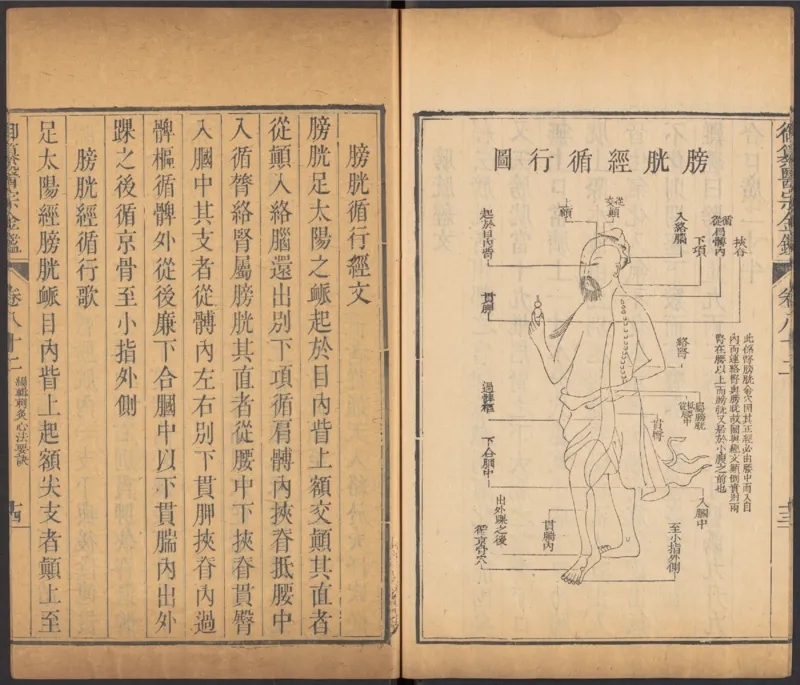 膀胱經循行圖
挾脊
循肩髆內
從
下項
入絡腦
從
交巔
上額
起於目內眥
貫胛
絡腎
屬膀胱
抵腰中
貫臀
過髀樞
下合膕中
入膕中
貫腨內
出外踝之後
循京骨穴
至小指外側
內而連絡腎與膀胱故
腎在腰以上而膀胱又居於小腹之前也
十三
御纂醫宗金鑑
卷八十二
編輯刺灸心法要訣
十四
膀胱循行經文
膀胱足太陽之脈起於目內眥上額交巔其直者
從巔入絡腦還出別下項循肩髆內挾脊抵腰中
入循膂絡腎屬膀胱其直者從腰中下挾脊貫臀
入膕中其支者從髆內左右別下貫胛挾脊內過
髀樞循髀外從後廉下合膕中以下貫腨內出外
踝之後循京骨至小指外側
膀胱經循行歌
足太陽經膀胱脈目內眥上起額尖支者巔上至